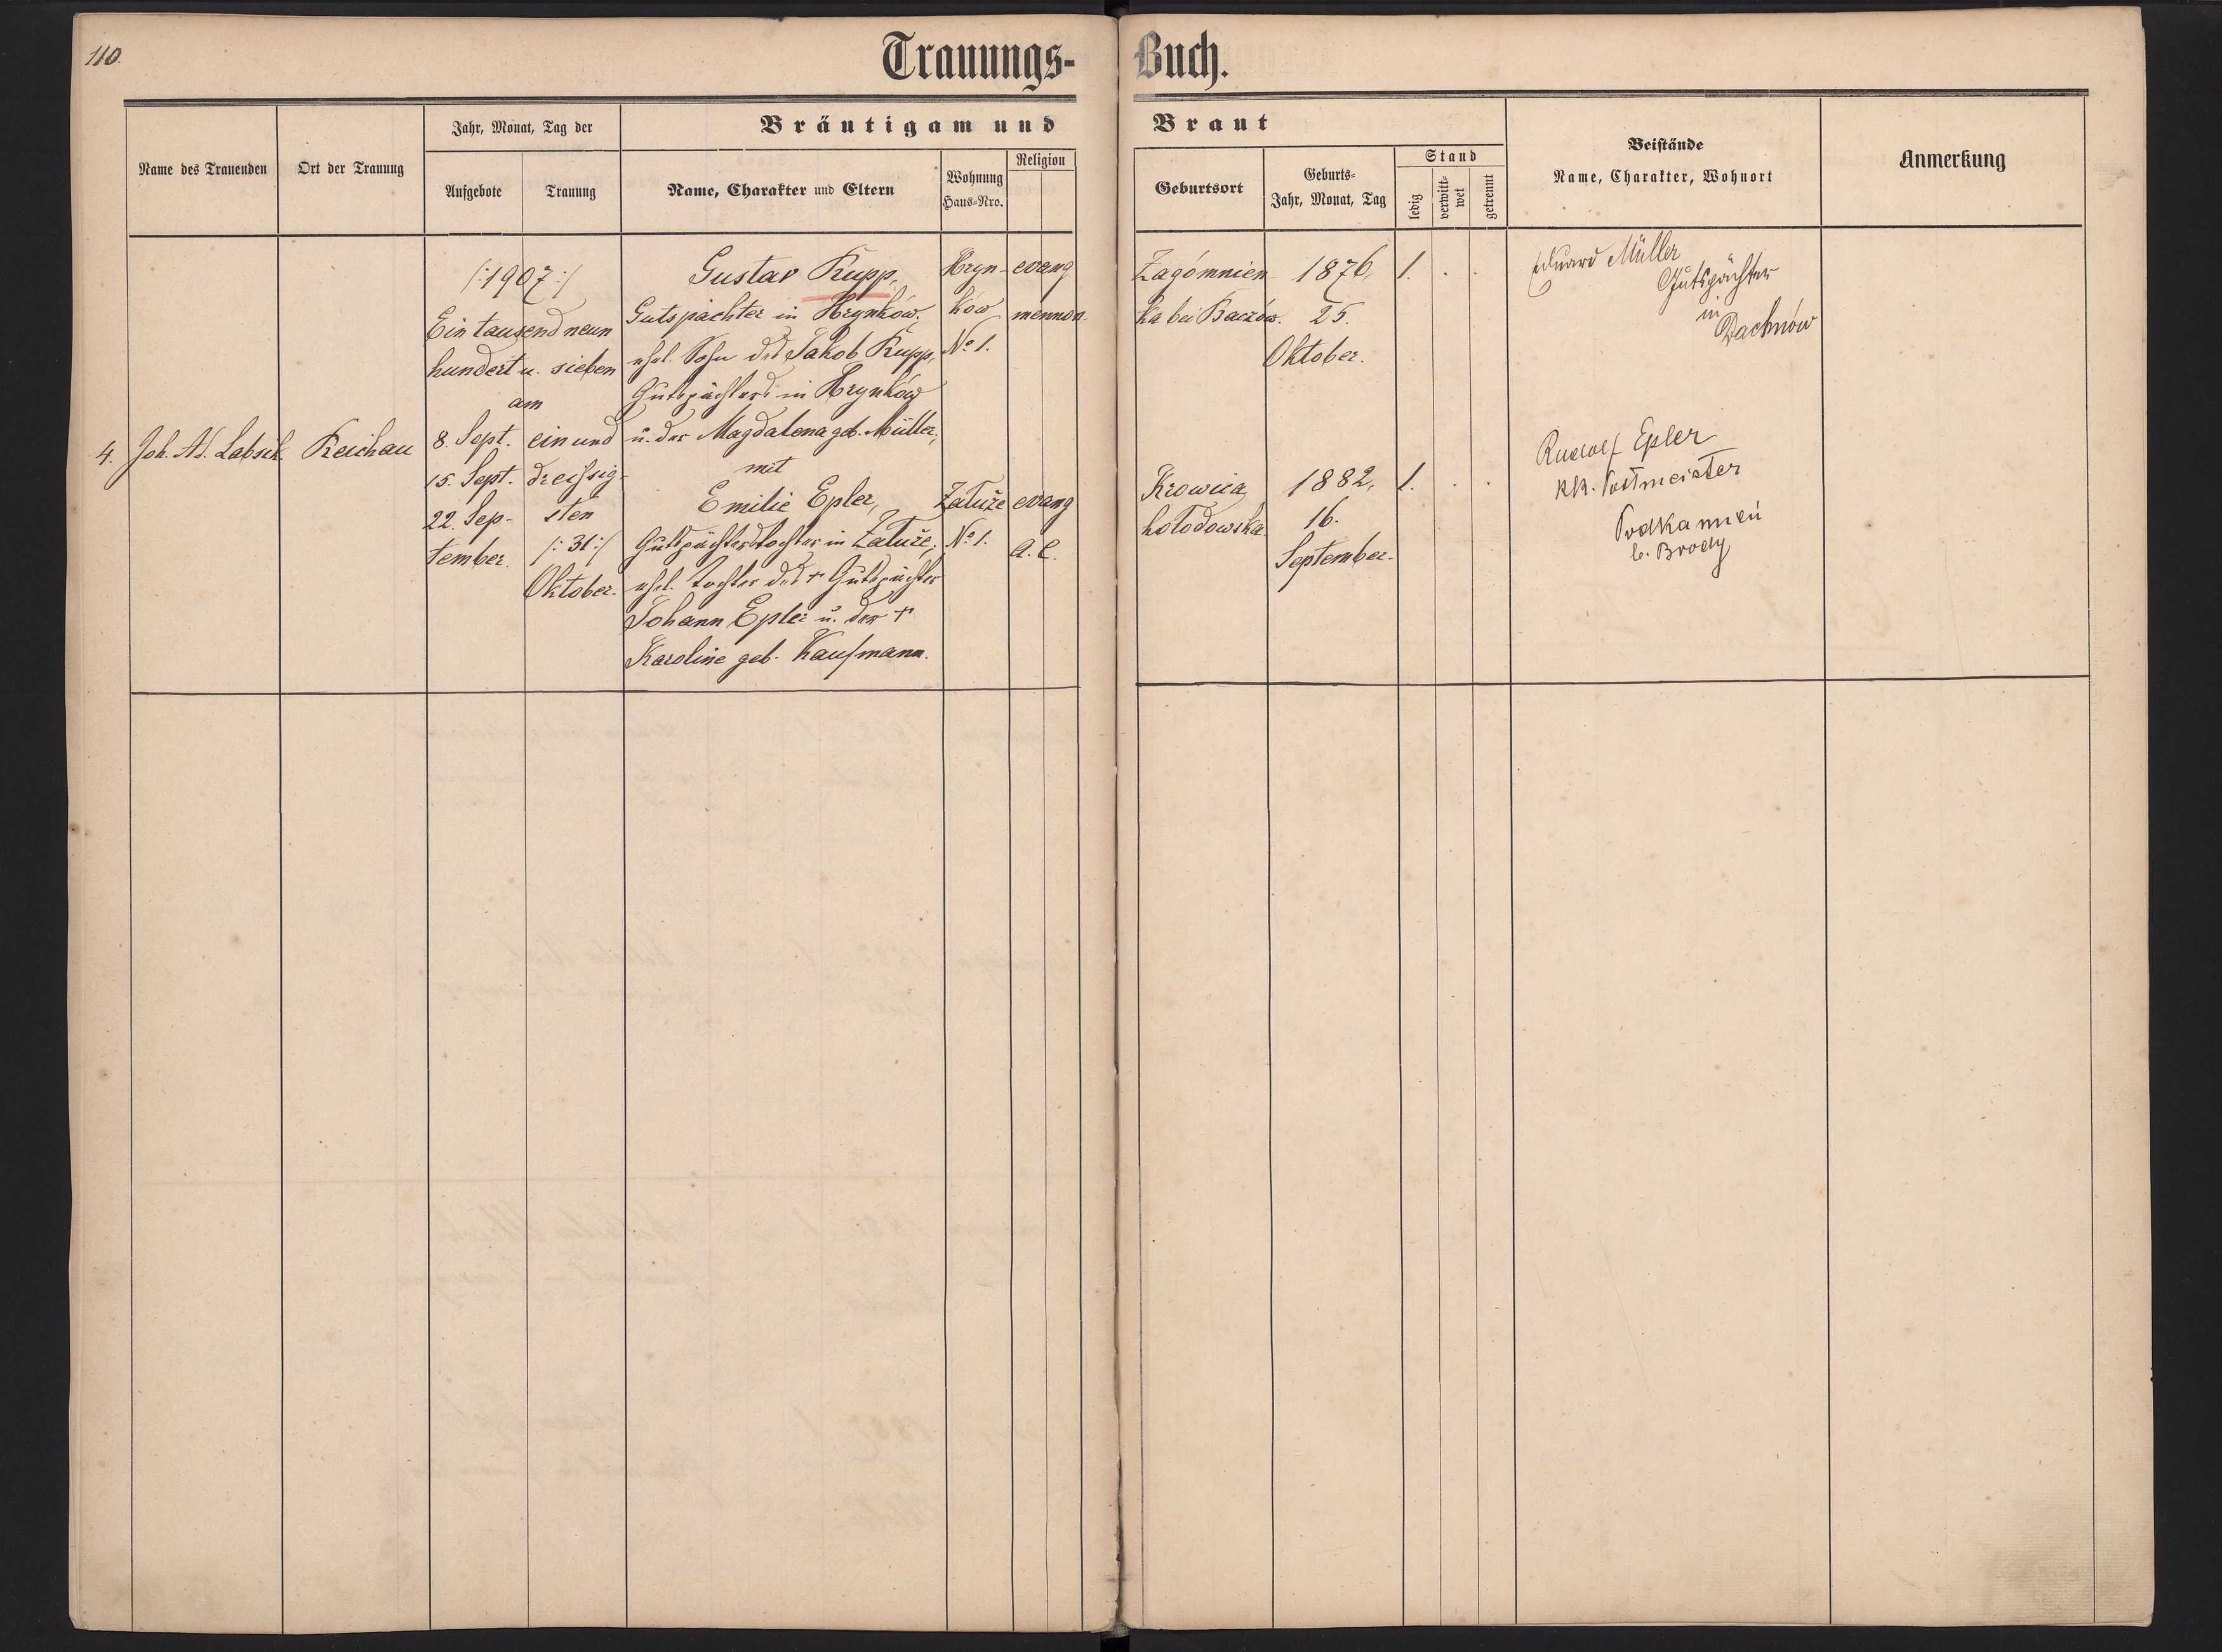 110.
Trauungs-Buch.
Name des Trauenden
Ort der Trauung
Jahr, Monat, Tag der
Aufgebote
Trauung
Bräutigam und Braut
Name, Charakter und Eltern
Wohnung
Haus-Nro.
Religion
Geburtsort
Geburts-
Jahr, Monat, Tag
Stand
ledig
verwitt-
wet
getrennt
Beistände
Name, Charakter, Wohnort
Anmerkung
4.
Joh. Ad. Labsik.
Reichau
/:1907:/
Ein tausend neun
hundert u. sieben
am
8. Sept.
15. Sept.
22. Sep-
tember.
ein und
dreissig-
sten
/:31:/
Oktober.
Gustav Rupp,
Gutspächter in Hrynków,
ehel. Sohn des Jakob Rupp,
Gutspächters in Hrynków
u. der Magdalena geb. Müller,
mit
Emilie Epler,
Gutspächterstochter in Załuże,
ehel. Tochter des + Gutspächter
Johann Epler u. der +
Karoline geb. Kaufmann.
Hryn-
ków
No 1.
evang
mennon.
Załuże
No 1.
evang
A. C.
Zagómnien
ka bei Baczów.
1876,
25.
Oktober.
1. . .
Krowica
hołodowska.
1882,
16.
September.
1. . .
Eduard Müller
Gutspächter
in
Dachnów
Rudolf Epler
kk. Postmeister
Podkamień
b. Brody